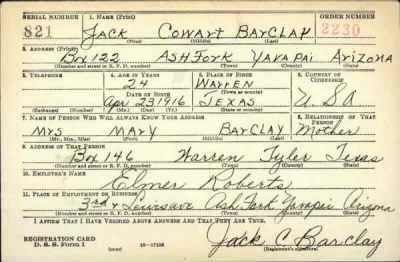 SERIAL NUMBER 1. NAME (Print) ORDER NUMBER
821 Jack Cowart Barclay 2230
(First) (Middle) (Last)
2. ADDRESS (Print)
Box 122 Ash Fork Yavapai Arizona
(Number and street or R. F. D. number) (Town) (County) (State)
3. TELEPHONE 4. AGE IN YEARS 5. PLACE OF BIRTH 6. COUNTRY OF CITIZENSHIP
24 Warren
DATE OF BIRTH (Town or county)
Apr 23 1916 Texas USA
(Exchange) (Number) (Mo.) (Day) (Yr.) (State or country)
7. NAME OF PERSON WHO WILL ALWAYS KNOW YOUR ADDRESS 8. RELATIONSHIP OF THAT PERSON
Mrs Mary Barclay Mother
(Mr., Mrs., Miss) (First) (Middle) (Last)
9. ADDRESS OF THAT PERSON
Box 146 Warren Tyler Texas
(Number and street or R. F. D. number) (Town) (County) (State)
10. EMPLOYER'S NAME
Elmer Roberts
11. PLACE OF EMPLOYMENT OR BUSINESS
3rd & Lewis ave Ash Fork Yavapai Arizona
(Number and street or R. F. D. number) (Town) (County) (State)
I AFFIRM THAT I HAVE VERIFIED ABOVE ANSWERS AND THAT THEY ARE TRUE.
REGISTRATION CARD
D. S. S. Form 1 Jack C. Barclay
(Registrant's signature)